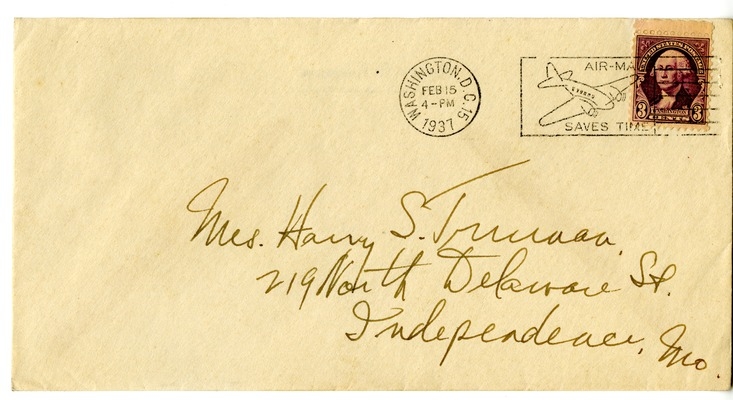 WASHINGTON, D.C. 15
FEB 15
4-PM
1937
AIR-MA
SAVES TIME
UNITED STATES POSTAGE
3 WASHINGTON 3
CENTS
Mrs. Harry S. Truman,
219 North Delaware St.
Independence, Mo.